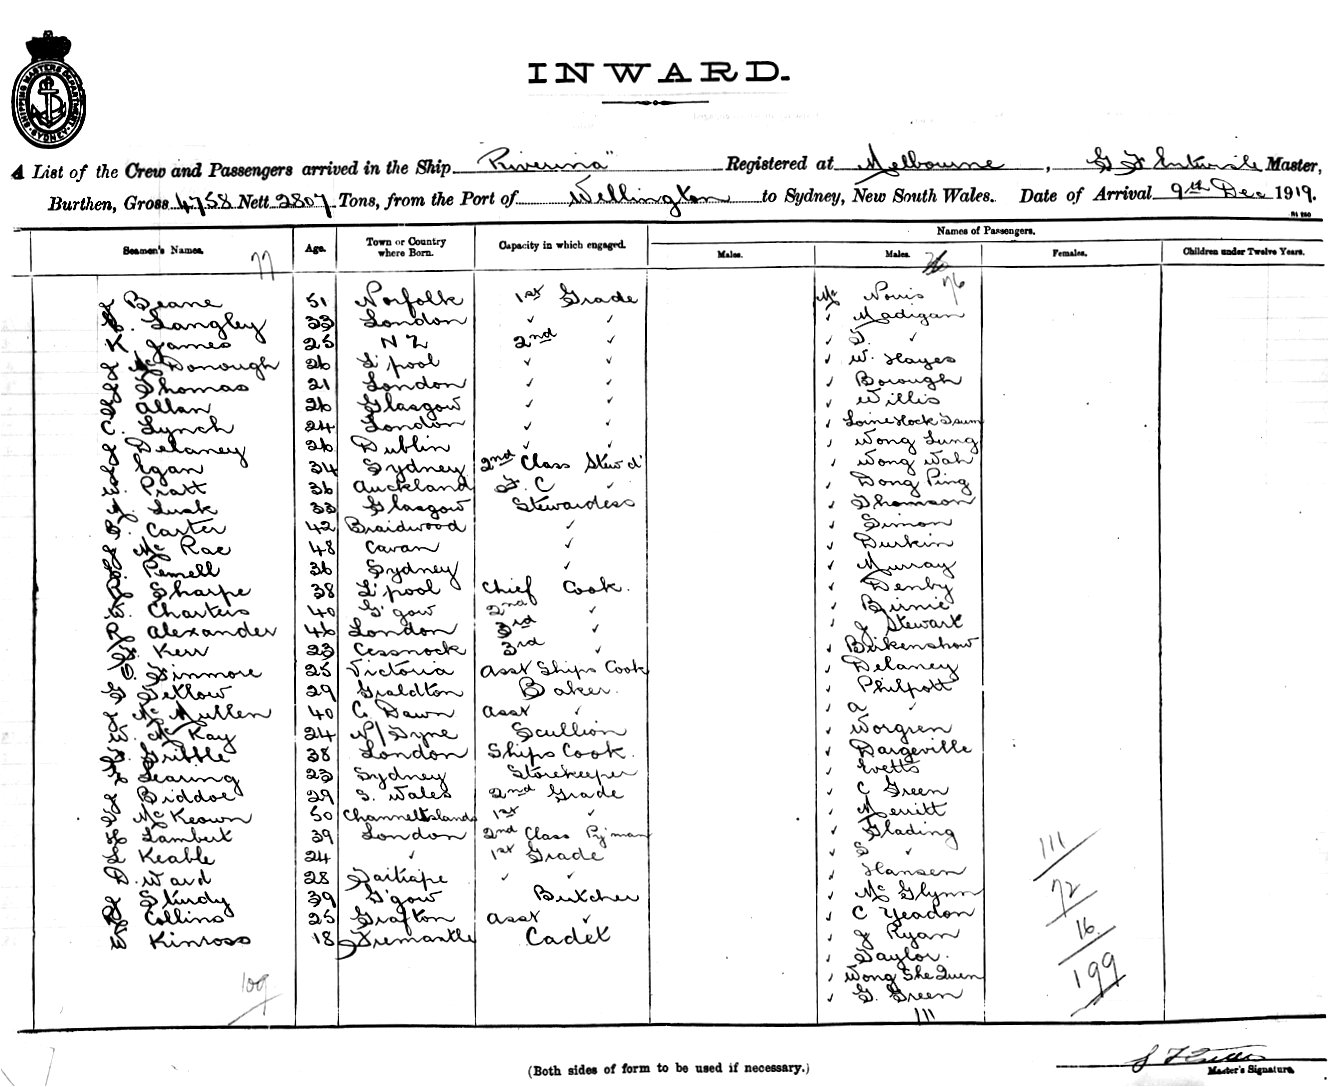 SHIPPING MASTERS DEPARTMENT SYDNEY
INWARD.
A List of the Crew and Passengers arrived in the Ship "Riverina" Registered at Melbourne, Master,
Burthen, Gross 4758 Nett 2807 Tons, from the Port of Wellington to Sydney, New South Wales. Date of Arrival 9th Dec 1919.
Names of Passengers.
Seamen's Names. Age. Town or Country where Born. Capacity in which engaged. Males. Males. Females. Children under Twelve Years.
77 76
Beane 51 Norfolk 1st Grade Mr
Langley 33 London ✓ ✓ ✓ Madigan
James 25 N Z 2nd ✓ ✓ ✓
McDonough 26 L'pool ✓ ✓ ✓ W. Hayes
Thomas 21 London ✓ ✓ ✓ Borough
Allan 26 Glasgow ✓ ✓ ✓ Willis
C. Lynch 24 London ✓ ✓ ✓
Delaney 26 Dublin ✓ ✓ ✓ Wong Lung
Egan 34 Sydney 2nd Class Stew'd ✓ Wong Wah
Pratt 36 Auckland ✓ ✓ Dong Ping
Lusk 33 Glasgow Stewardess ✓ Thomson
Carter 42 Braidwood ✓ ✓ Simon
McRae 48 Cavan ✓ ✓ Durkin
36 Sydney ✓ ✓ Murray
Sharpe 38 L'pool Chief Cook. ✓ Denby
Charters 40 G'gow 2nd ✓ ✓ Birnie
Alexander 46 London 3rd ✓ ✓ J Stewart
Kerr 23 Cessnock 3rd ✓ ✓ Birkenshow
Finmore 25 Victoria Asst Ships Cook ✓ Delaney
Tetlow 29 Graldton Baker. ✓ Philpott
McMullen 40 Co Dawn Asst ✓ ✓ A ✓
McKay 24 N/Tyne Scullion ✓ Worgren
Gribble 38 London Ships Cook. ✓ Dargeville
Searing 23 Sydney Storekeeper ✓ Evetts
Biddoe 29 S. Wales 2nd Grade ✓ C Green
McKeown 50 Channel Islands 1st ✓ ✓ Merritt
Lambert 39 London 2nd Class P'yman ✓ Glading
Keable 24 ✓ 1st Grade ✓ ✓
D. Ward 28 Taihape ✓ ✓ ✓ Hansen
Sturdy 39 G'gow Butcher ✓ McGlynn
Collins 25 Grafton Asst ✓ ✓ C Yeadon
Kinross 18 Fremantle Cadet ✓ J Ryan
✓ Taylor.
✓ Wong She Quen
✓ G. Green
109
111
111
72
16.
199
(Both sides of form to be used if necessary.)
Master's Signature.